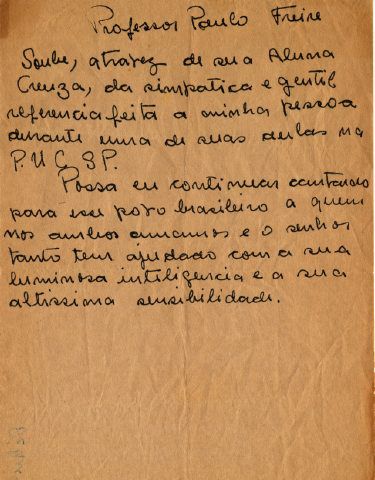 Professor Paulo Freire
Soube, atravez de sua Aluna
Creuza, da simpatica e gentil
referencia feita a minha pessoa
durante uma de suas aulas na
P.U.C. SP.
Possa eu continuar cantando
para esse povo brasileiro a quem
nos ambos amamos e o senhor
tanto tem ajudado com a sua
luminosa inteligencia e a sua
altissima sensibilidade.